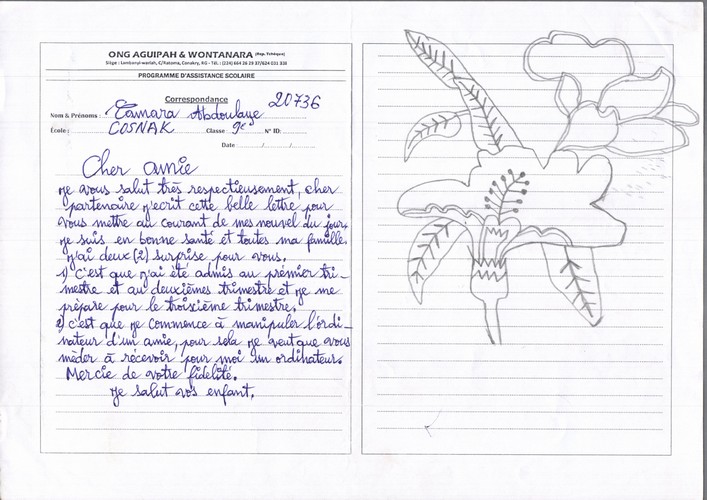 ONG AGUIPAH & WONTANARA (Rep. Tchèque)
Siège : Lambanyi-wariah, C/Ratoma, Conakry, RG - Tél. : (224) 664 26 29 37/624 031 358
PROGRAMME D'ASSISTANCE SCOLAIRE
Correspondance 20736
Nom & Prénoms : Camara Abdoulaye
École : COSNAK Classe 9e N° ID:
Date / /
Cher amie
Je vous salut très respectieusement, cher
partenaire j'ecrit cette belle lettre pour
vous mettre au courant de mes nouvel du jour.
Je suis en bonne santé et toutes ma famille.
J'ai deux (2) surprise pour vous.
1) C'est que j'ai été admis au prémier tri-
mestre et au deuxièmes trimestre et je me
prépare pour le troixième trimestre.
2) c'est que je commence à manipuler l'ordi-
nateur d'um amie, pour sela je veut que vous
mèder à récevoir pour moi un ordinateur.
Mercie de votre fidelité.
Je salut vos enfant.